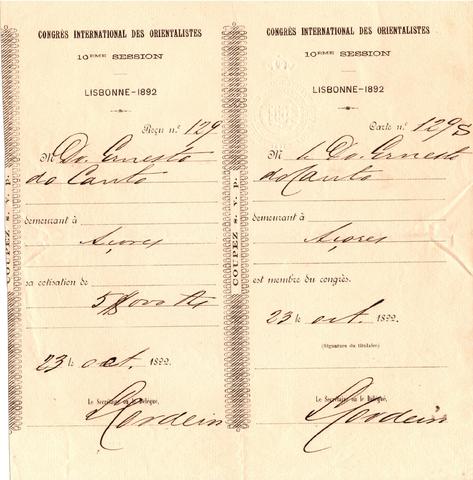 CONGRÈS INTERNATIONAL DES ORIENTALISTES
10ÈME SESSION
LISBONNE—1892
Reçu n.º 129
M Do. Ernesto
do Canto
demeurant à
Açores
sa cotisation de
23 le oct. 1892.
Le Secrétaire ou le Délégué,
Cordeiro
COUPEZ s. v. p.
CONGRÈS INTERNATIONAL DES ORIENTALISTES
10ÈME SESSION
LISBONNE—1892
Carte n.º 129
M Do. Ernesto
do Canto
demeurant à
Açores
est membre du congrès.
23 le oct. 1892.
(Signature du titulaire)
Le Secrétaire ou le Délégué,
Cordeiro
COUPEZ s. v. p.